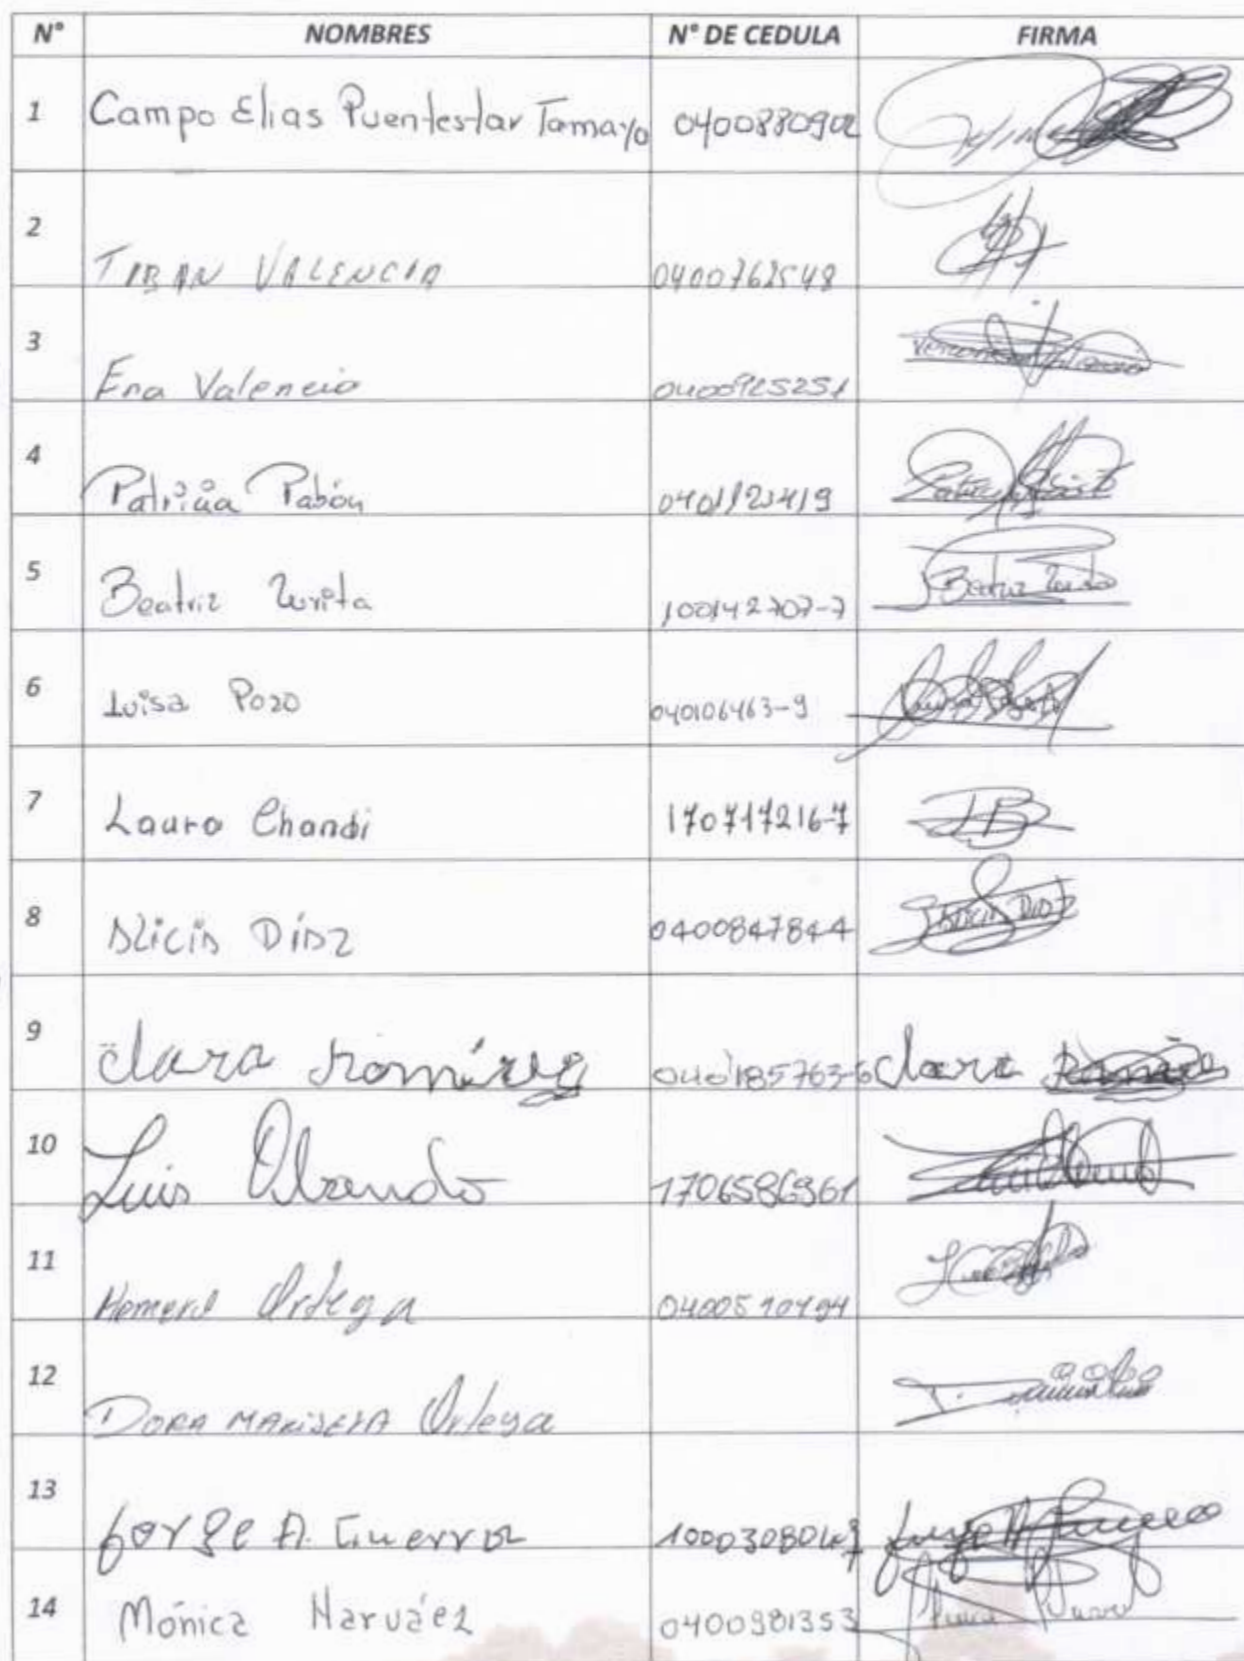 N° NOMBRES N° DE CEDULA FIRMA
1 Campo Elias Puentestar Tamayo 0400880902
2 VALENCIA 0400762548
3 Valencia 0400925251
4 Patricia Pabón
5 Beatriz Zurita 100142707-7 Beatriz Zurita
6 Luisa Pozo 040106463-9
7 Lauro Chandi 170717216-7
8 Alicia Díaz 0400847844 Alicia Díaz
9 Clara Romírez 040185763-6 Clara
10 Luis Obando 1706586961
11 Ortega
12 DORA MARISELA Ortega
13 Jorge A. Guerra
14 Mónica Narváez 0400981353